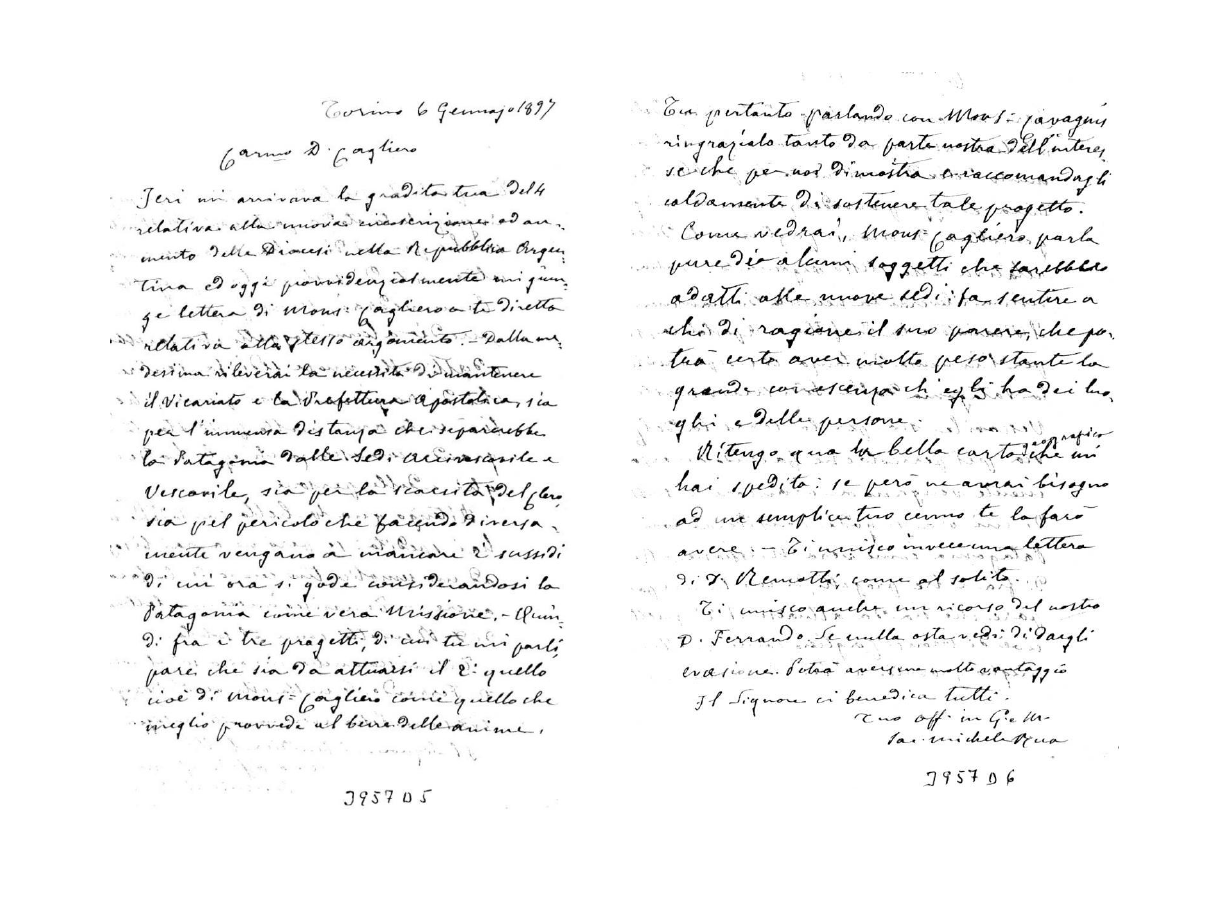 Torino 6 Gennajo 1897
Carmo D. Cagliero
Jeri mi arrivava la gradita tua del 4
relativa alla nuova circoscrizione ed au-
mento delle Diocesi nella Repubblica Argen-
tina ed oggi provvidenzialmente mi giun-
ge lettera di Mons: Cagliero a te diretta
relativa allo stesso argomento. - Dalla me-
desima rileverai la necessità di mantenere
il Vicariato e la Prefettura Apostolica, sia
per l'immensa distanza che separerebbe
la Patagonia dalle Sedi Arcivescovile e
Vescovile, sia per la scarsità del Clero,
sia pel pericolo che facendo diversa-
mente vengano a mancare i sussidi
di cui ora si gode considerandosi la
Patagonia come vera Missione. - Quin-
di fra i tre progetti, di cui tu mi parli,
pare che sia da attuarsi il 2.° quello
cioè di Mons: Cagliero come quello che
meglio provvede al bene delle anime.
J957 D 5
Tu pertanto parlando con Mons: Cavagnis
ringrazialo tanto da parte nostra dell'interes
se che per noi dimostra e raccomandagli
caldamente di sostenere tale progetto.
Come vedrai, Mons: Cagliero parla
pure di alcuni soggetti che sarebbero
adatti alle nuove sedi: fa sentire a
chi di ragione il suo parere, che po-
trà certo aver molto peso stante la
grande conoscenza ch'egli ha dei luo-
ghi e delle persone.
Ritengo qua la bella carta geografica che mi
hai spedita: se però ne avrai bisogno
ad un semplice tuo cenno te la farò
avere. - Ti unisco invece una lettera
di D. Remotti come al solito.
Ti unisco anche un ricorso del nostro
D. Ferrando. Se nulla osta vedi di dargli
evasione. Potrà averne molto vantaggio
Il Signore ci benedica tutti.
Tuo aff. in G. e M.
Sac. Michele Rua
J957 D 6